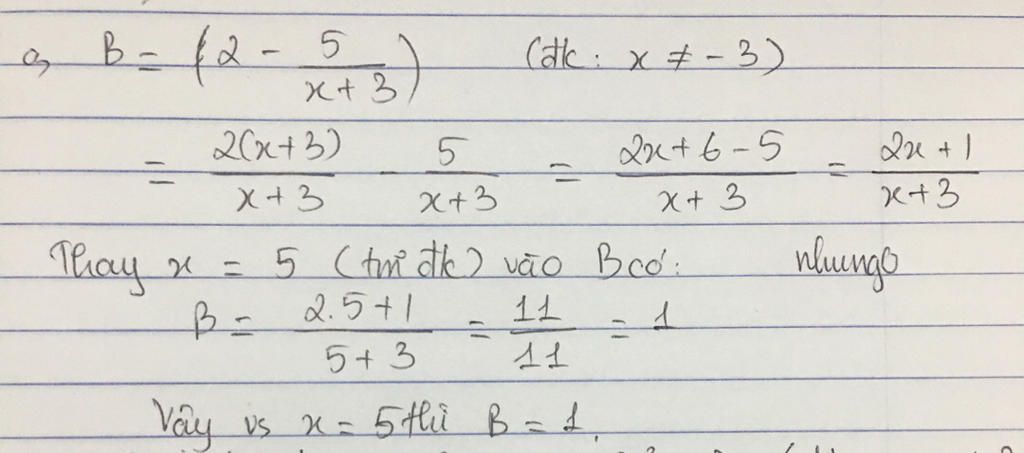 a, B = (2 - 5/(x+3)) (đk: x ≠ -3)
= 2(x+3)/(x+3) - 5/(x+3) = (2x+6-5)/(x+3) = (2x+1)/(x+3)
Thay x = 5 (tmđk) vào B có: nhungo
B = (2.5+1)/(5+3) = 11/11 = 1
Vậy vs x = 5 thì B = 1.